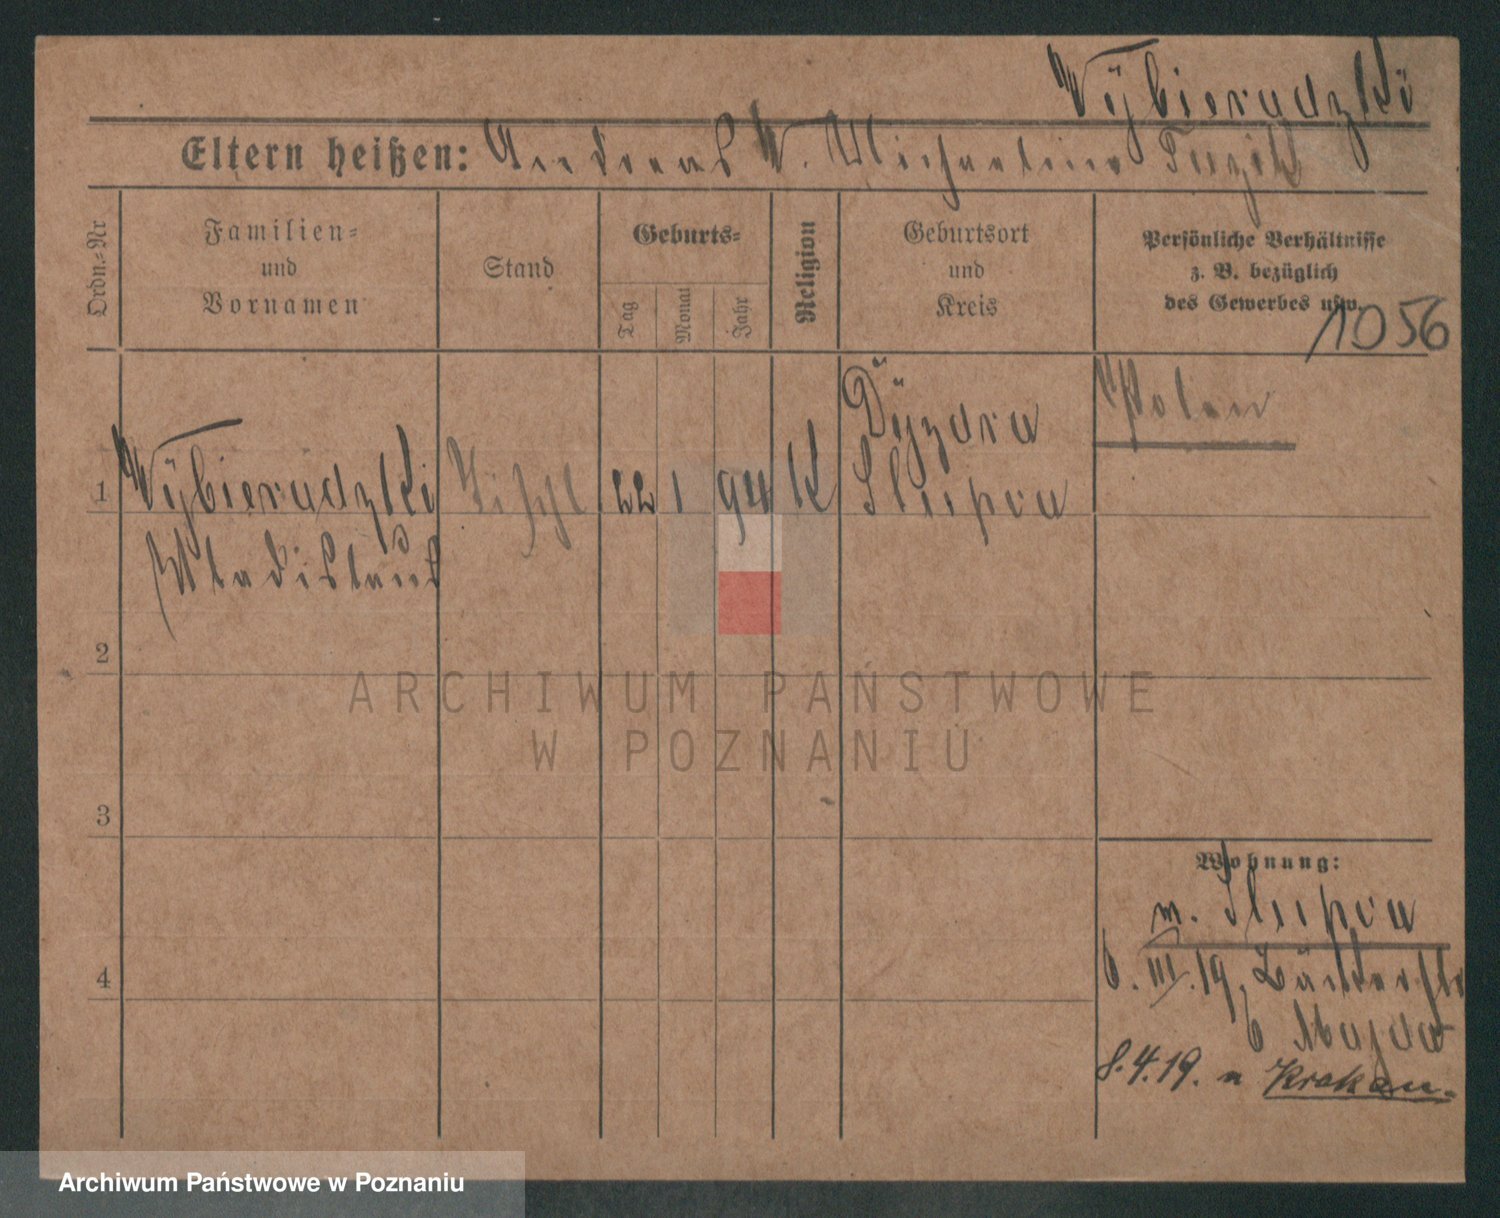 Wÿbieradzki
Eltern heißen: Andreas W. Michalina
Ordn.-Nr
Familien-
und
Vornamen
Stand
Geburts-
Tag
Monat
Jahr
Religion
Geburtsort
und
Kreis
Persönliche Verhältnisse
z. B. bezüglich
des Gewerbes usw.
1056
Polen
1
Wÿbieradzki
Wladislaus
22 1 94 K
Slupca
2
3
4
Wohnung:
m. Slupca
6. III. 19. Bäckerstr
8.4.19. n Krakau.
ARCHIWUM PAŃSTWOWE
W POZNANIU
Archiwum Państwowe w Poznaniu